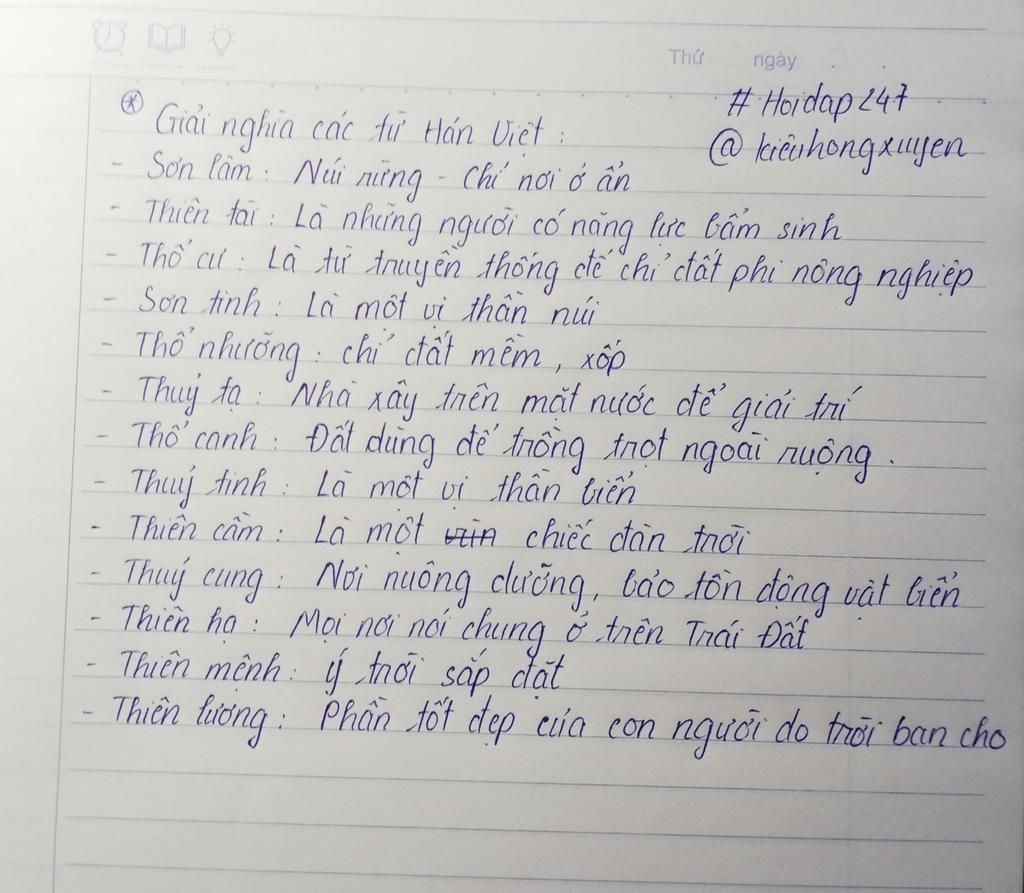 Thứ ngày
# Hoidap247
Giải nghĩa các từ Hán Việt :
@ kiềuhongxuyen
- Sơn lâm : Núi rừng - Chỉ nơi ở ẩn
- Thiên tài : Là những người có năng lực bẩm sinh
- Thổ cư : Là từ truyền thống để chỉ đất phi nông nghiệp
- Sơn tinh : Là một vị thần núi
- Thổ nhưỡng : chỉ đất mềm, xốp
- Thuỷ tạ : Nhà xây trên mặt nước để giải trí
- Thổ canh : Đất dùng để trồng trọt ngoài ruộng.
- Thuỷ tinh : Là một vị thần biển
- Thiên cầm : Là một chiếc đàn trời
- Thuỷ cung : Nơi nuông dưỡng, bảo tồn động vật biển
- Thiên hạ : Mọi nơi nói chung ở trên Trái Đất
- Thiên mệnh : ý trời sắp đặt
- Thiên lương : Phần tốt đẹp của con người do trời ban cho